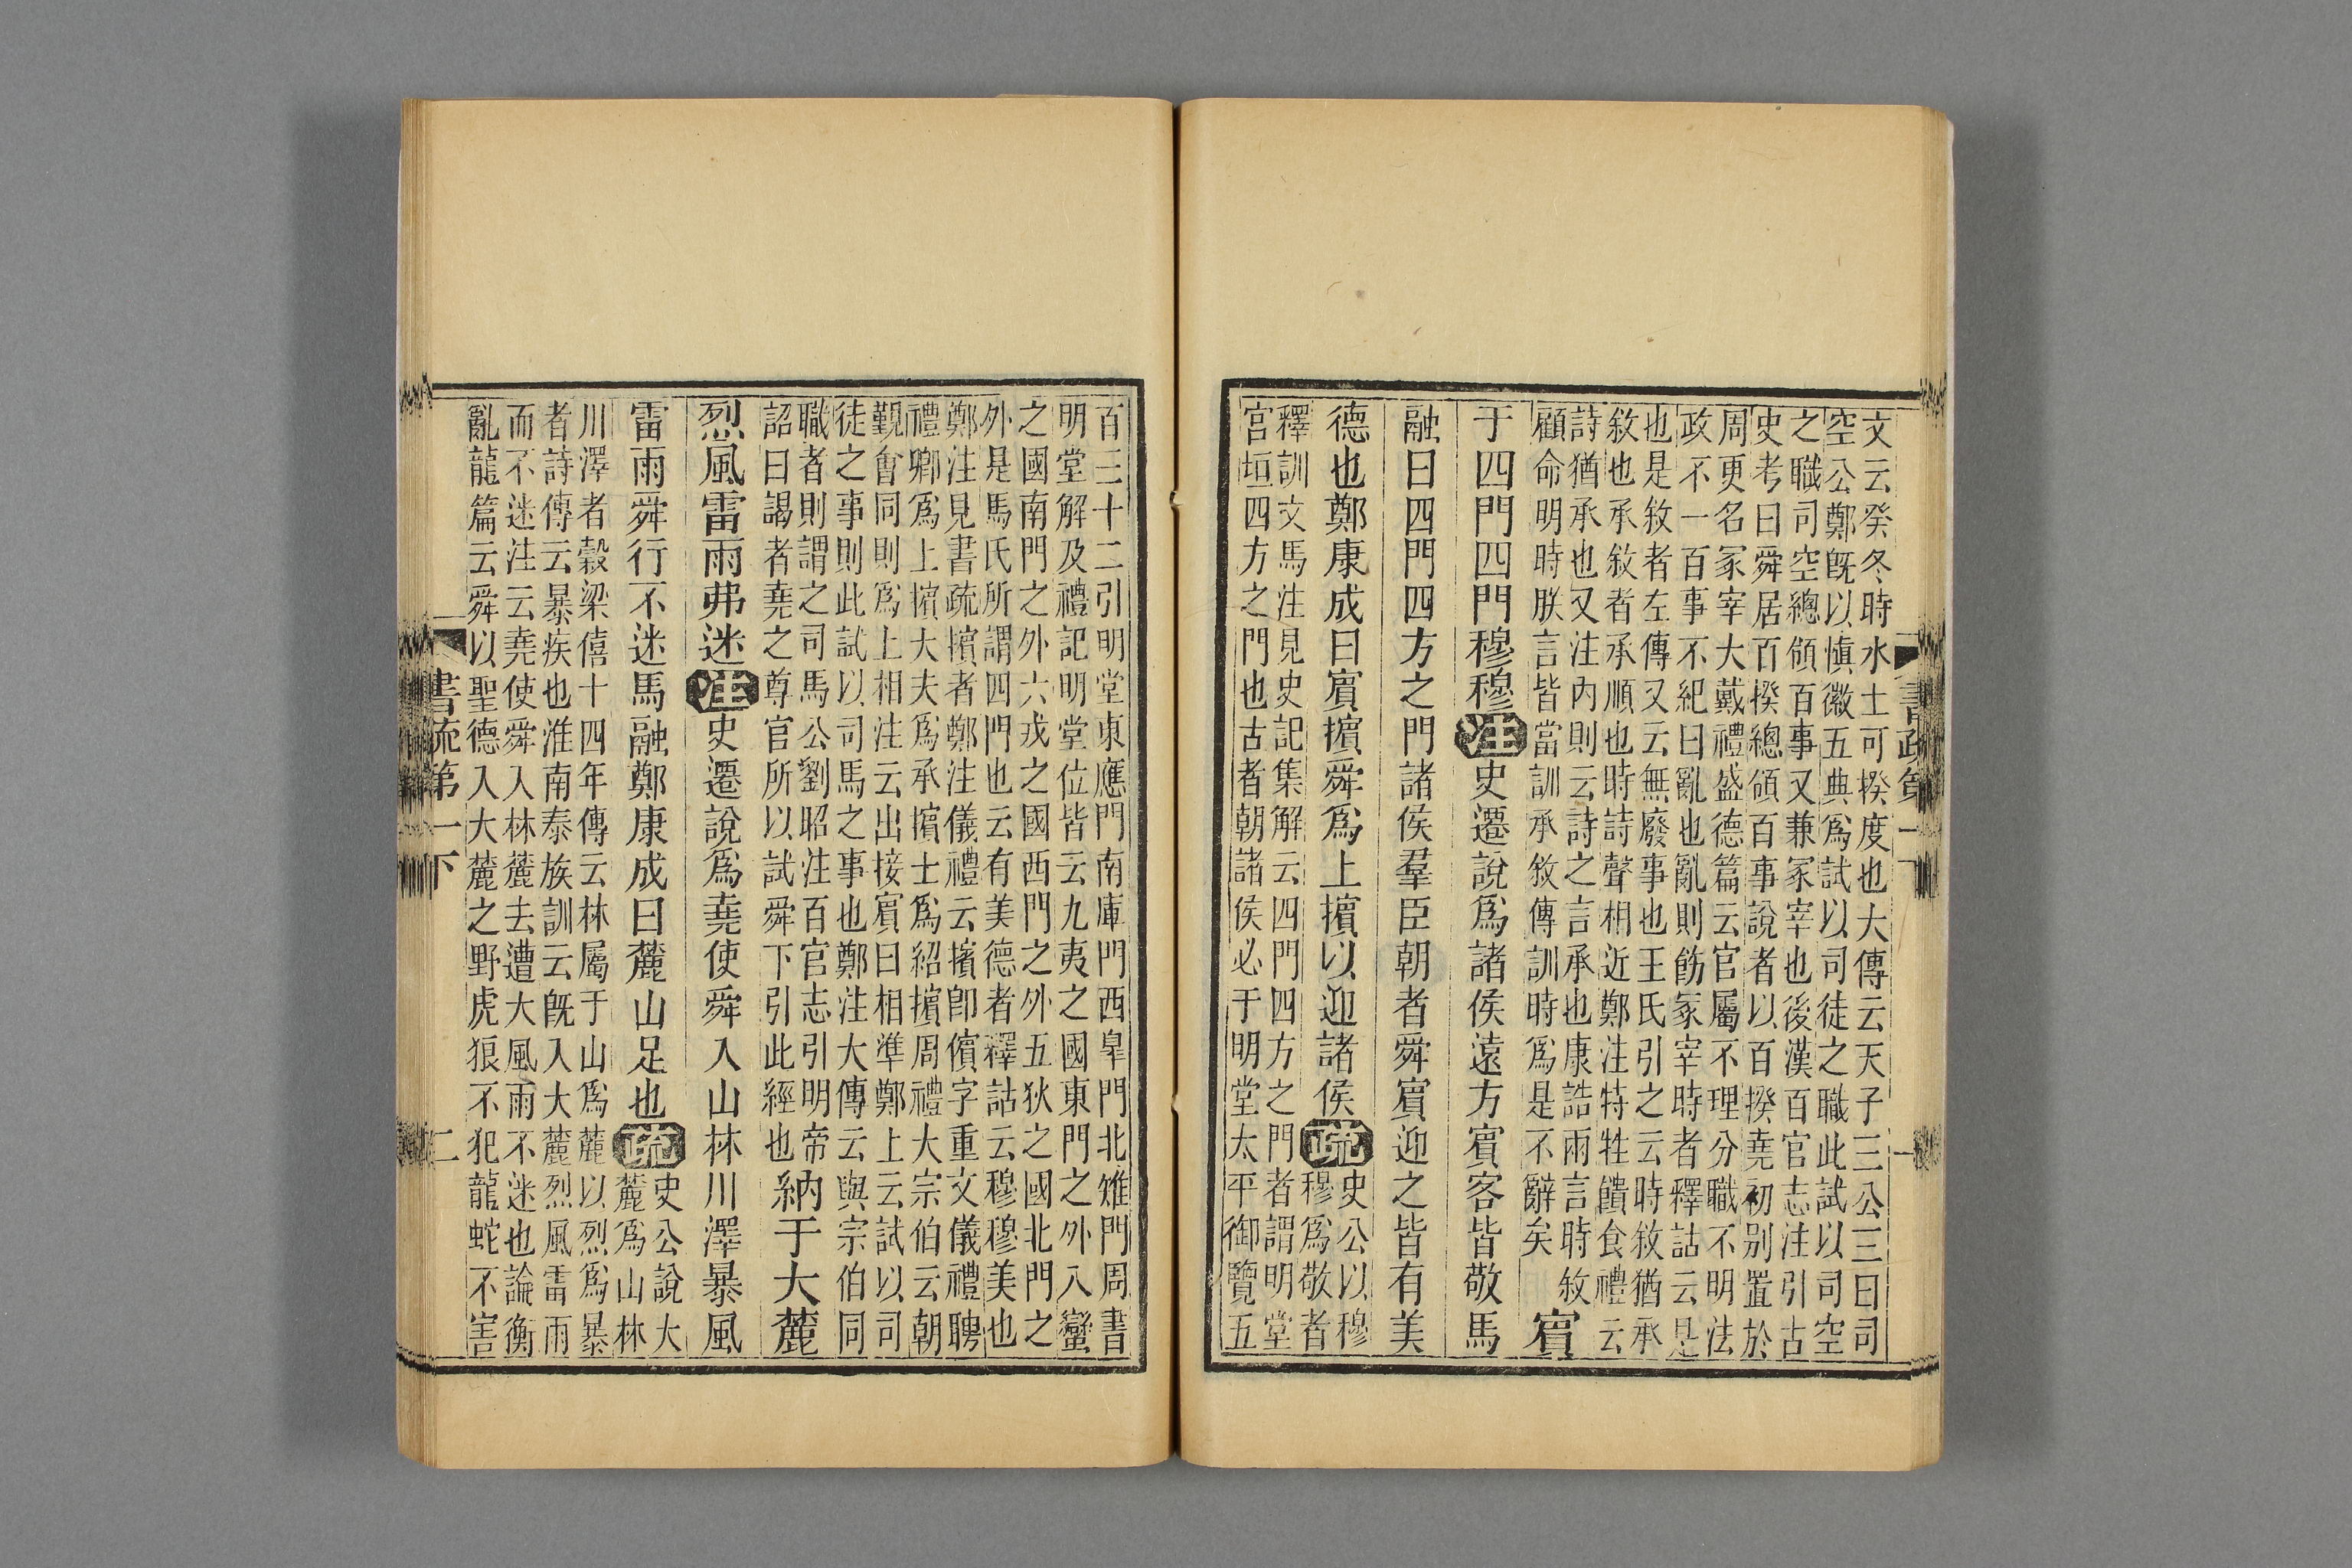 文云癸冬時水土可揆度也大傳云天子三公三曰司
空公鄭旣以愼徽五典爲試以司徒之職此試以司空
之職司空總領百事又兼冢宰也後漢百官志注引古
史考曰舜居百揆總領百事說者以百揆堯初别置於
周更名冢宰大戴禮盛德篇云官屬不理分職不明法
政不一百事不紀曰亂也亂則飭冢宰時者釋詁云是
也是敘者左傳又云無廢事也王氏引之云時敘猶承
敘也承敘者承順也時詩聲相近鄭注特牲饋食禮云
詩猶承也又注內則云詩之言承也康誥雨言時敘
顧命明時朕言皆當訓承敘傳訓時爲是不辭矣
賓
于四門四門穆穆注史遷說爲諸侯遠方賓客皆敬馬
融曰四門四方之門諸侯羣臣朝者舜賓迎之皆有美
德也鄭康成曰賓擯舜爲上擯以迎諸侯疏
史公以穆
穆爲敬者
釋訓文馬注見史記集解云四門四方之門者謂明堂
宮垣四方之門也古者朝諸侯必于明堂太平御覽五
書疏第一下
百三十二引明堂東應門南庫門西皐門北雉門周書
明堂解及禮記明堂位皆云九夷之國東門之外八蠻
之國南門之外六戎之國西門之外五狄之國北門之
外是馬氏所謂四門也云有美德者釋詁云穆穆美也
鄭注見書疏擯者鄭注儀禮云擯卽儐字重文儀禮聘
禮卿爲上擯大夫爲承擯士爲紹擯周禮大宗伯云朝
覲會同則爲上相注云出接賓曰相準鄭上云試以司
徒之事則此試以司馬之事也鄭注大傳云與宗伯同
職者則謂之司馬公劉昭注百官志引明帝
詔曰謁者堯之尊官所以試舜下引此經也
納于大麓
烈風雷雨弗迷注史遷說爲堯使舜入山林川澤暴風
雷雨舜行不迷馬融鄭康成曰麓山足也疏
史公說大
麓爲山林
川澤者穀梁僖十四年傳云林屬于山爲麓以烈爲暴
者詩傳云暴疾也淮南泰族訓云旣入大麓烈風雷雨
而不迷注云堯使舜入林麓去遭大風雨不迷也論衡
亂龍篇云舜以聖德入大麓之野虎狼不犯龍蛇不害
書疏第一下
二